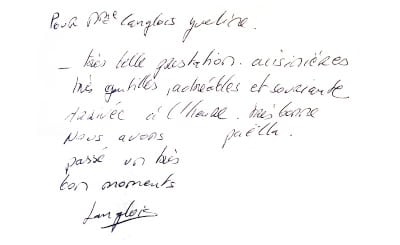 Pour Mme Langlois
_ très belle prestation. cuisinières
très gentilles, agréables et souriante
Arrivée à l'heure. très bonne
Nous avons paëlla.
passé un très
bon moments
Langlois